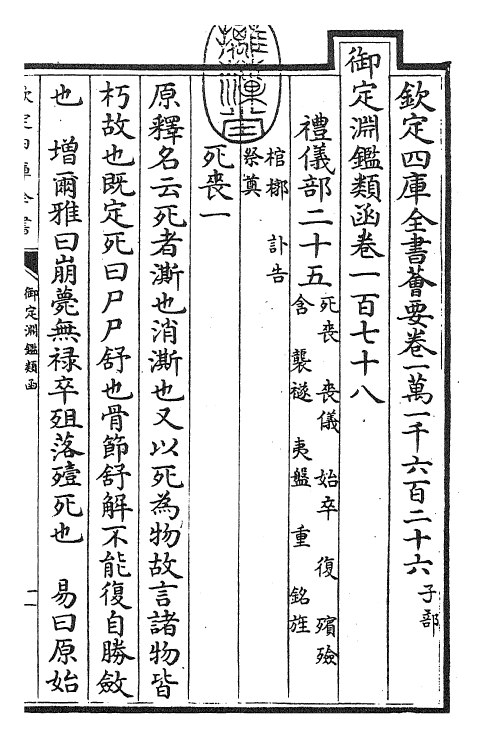 欽定四庫全書薈要卷一萬一千六百二十六 子部
御定淵鑑類函卷一百七十八
禮儀部二十五 死喪 喪儀 始卒 復 殯殮
含 襲襚 夷盤 重 銘旌
棺槨 訃告
祭奠
死喪一
原釋名云死者澌也消澌也又以死為物故言諸物皆
朽故也既定死曰尸尸舒也骨節舒解不能復自勝斂
也 增爾雅曰崩薨無禄卒殂落殪死也 易曰原始
欽定四庫全書
御定淵鑑類函
二